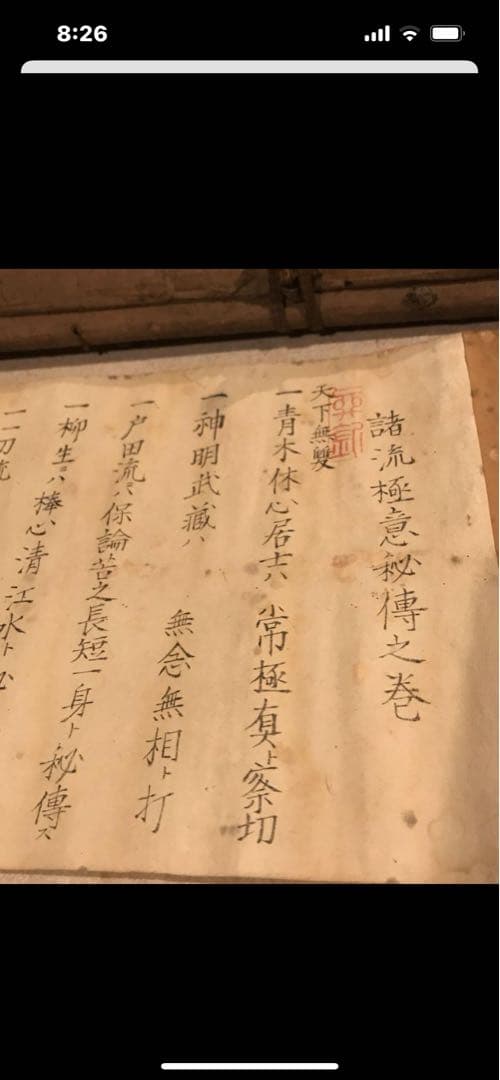 8:26
諸流極意秘傳之巻
天下無雙
一青木休心居士ハ 常極貟ト察切
一神明武藏ハ 無念無相ト打
一戸田流ニハ保論苦之長短一身ト秘傳ス
一柳生ニハ棒心清江水ト
一二刀流